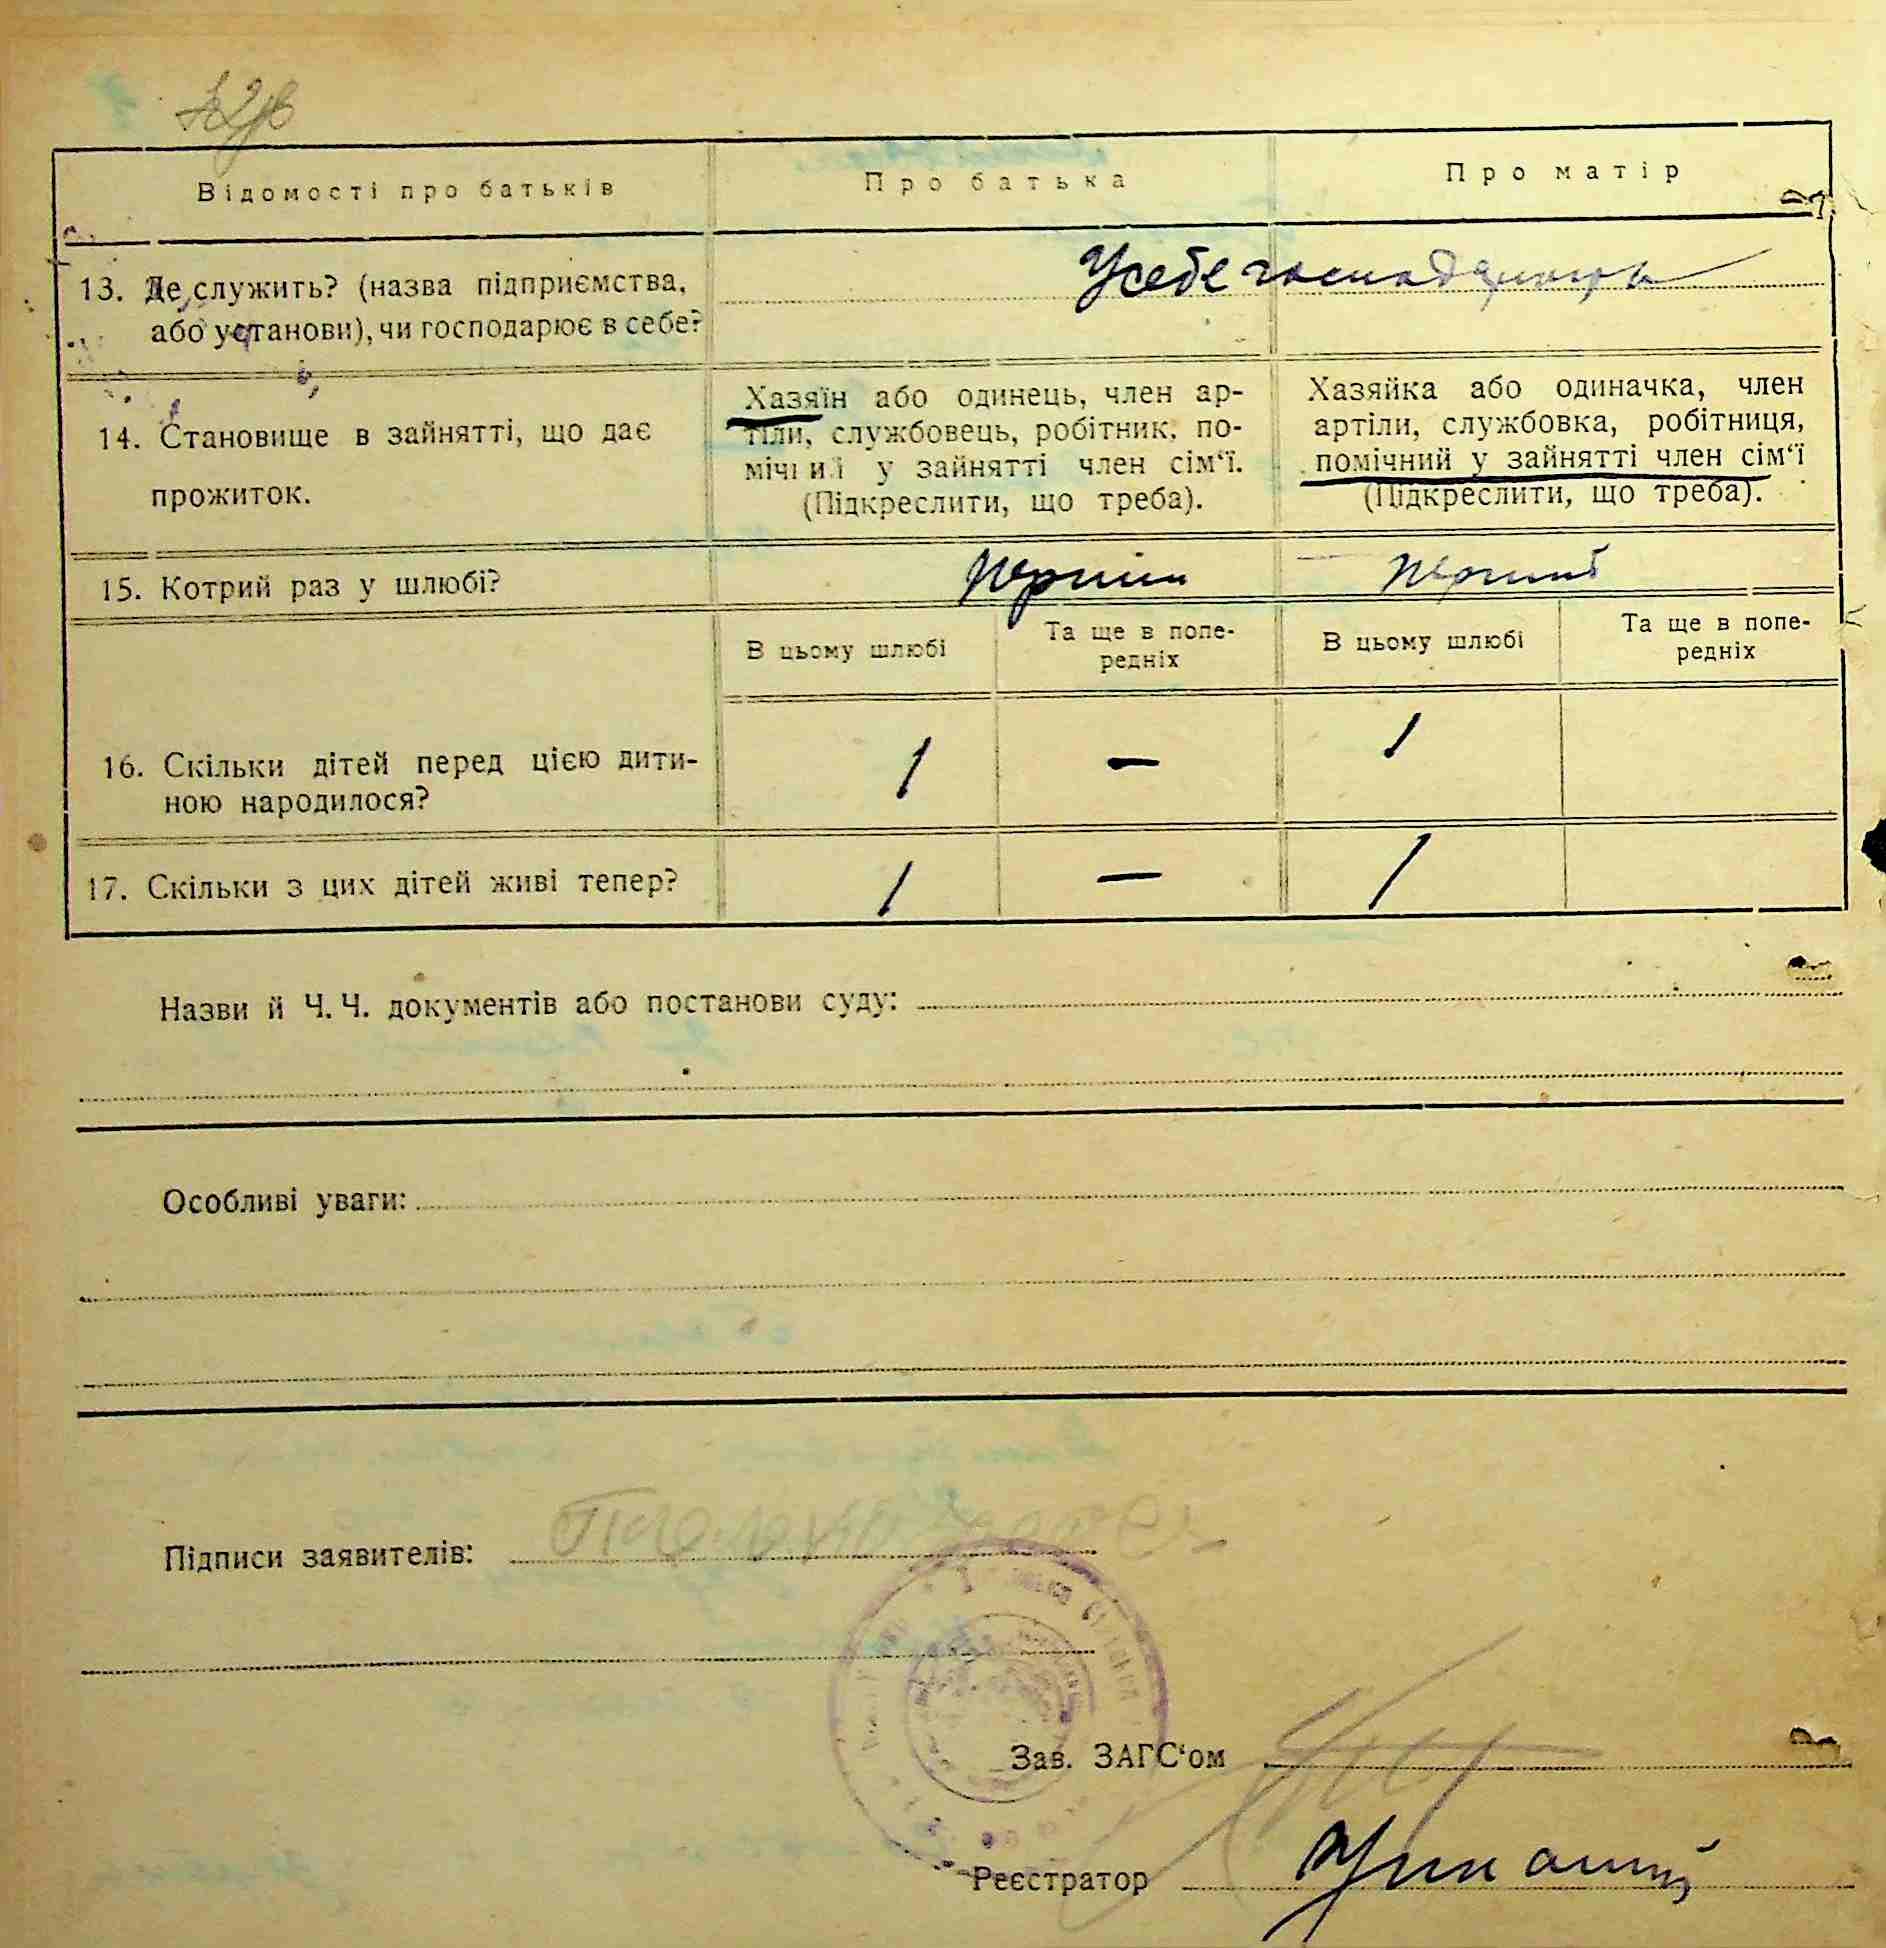 Відомості про батьків
Про батька
Про матір
13. Де служить? (назва підприємства,
або установи), чи господарює в себе?
У себе господарюють
14. Становище в зайнятті, що дає
прожиток.
Хазяїн або одинець, член ар-
тіли, службовець, робітник, по-
мічний у зайнятті член сім‘ї.
(Підкреслити, що треба).
Хазяйка або одиначка, член
артіли, службовка, робітниця,
помічний у зайнятті член сім‘ї
(Підкреслити, що треба).
15. Котрий раз у шлюбі?
перший
перший
В цьому шлюбі
Та ще в попе-
редніх
В цьому шлюбі
Та ще в попе-
редніх
16. Скільки дітей перед цією дити-
ною народилося?
1 — 1
17. Скільки з цих дітей живі тепер?
1 — 1
Назви й Ч. Ч. документів або постанови суду:
Особливі уваги:
Підписи заявителів:
Зав. ЗАГС‘ом
Реєстратор